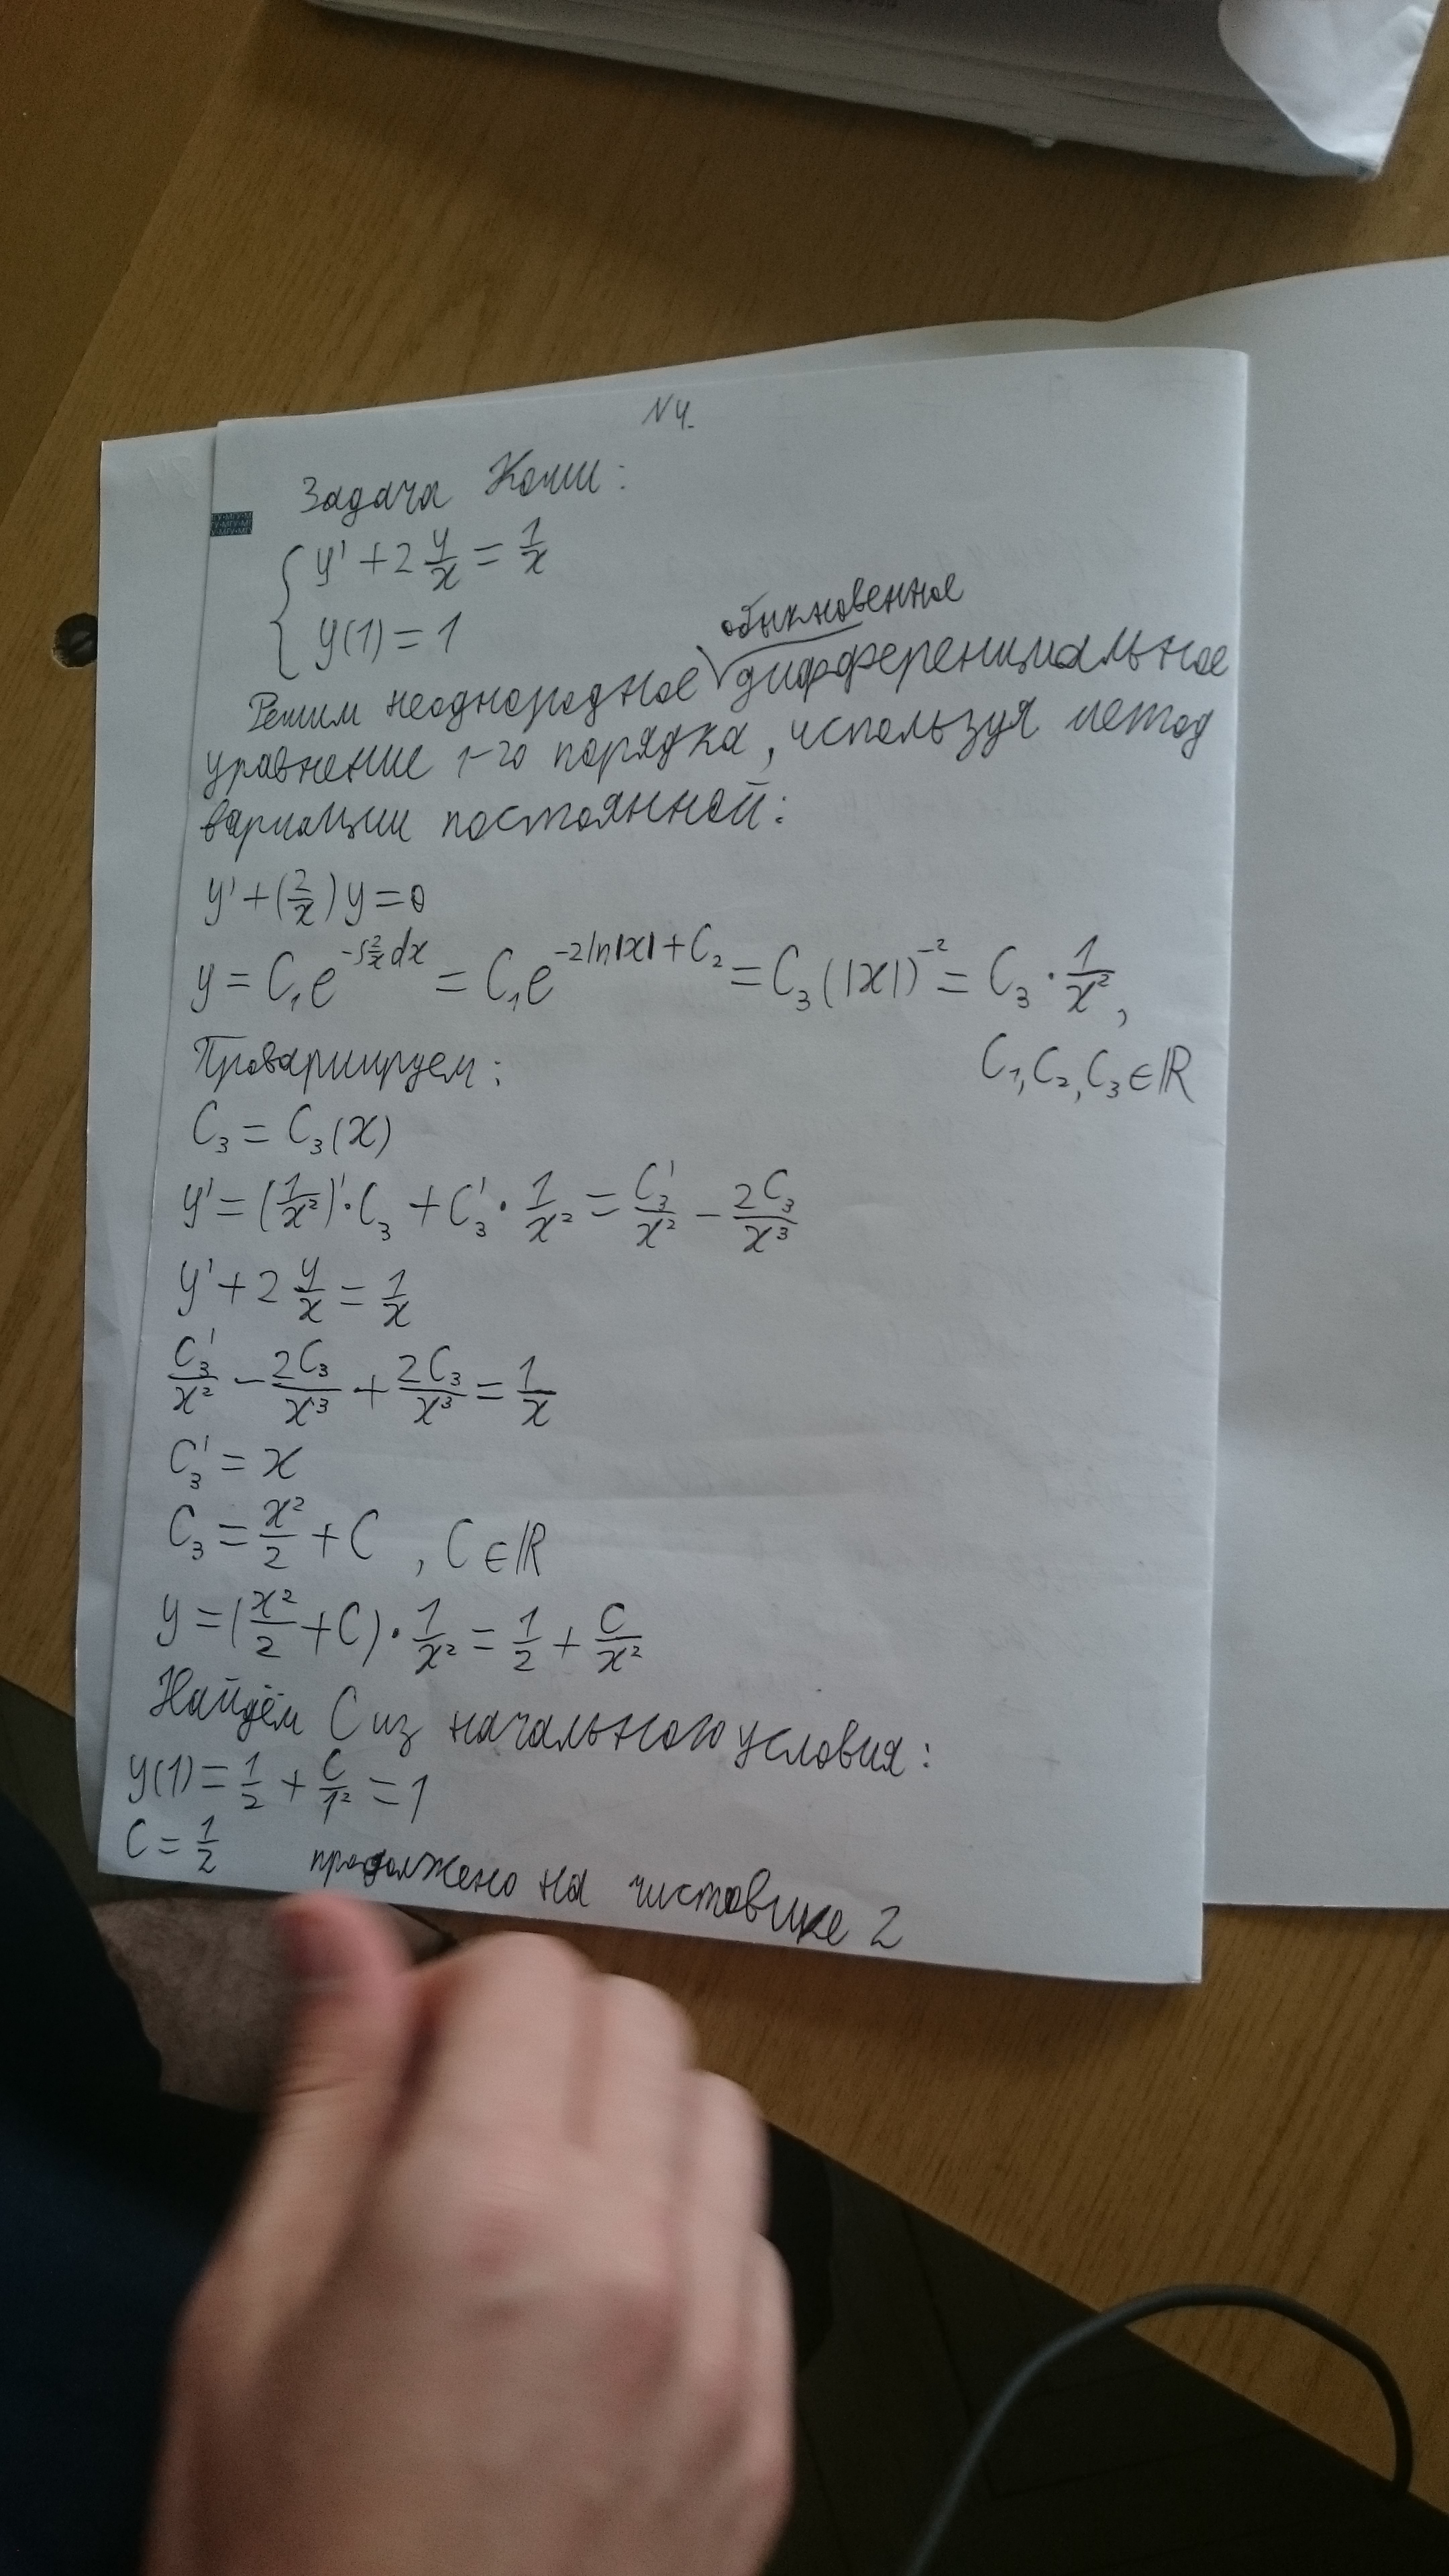 N4.
Задача Коши:
{ y' + 2 y/x = 1/x
y(1) = 1
обыкновенное
Решим неоднородное дифференциальное
уравнение 1-го порядка, используя метод
вариации постоянной:
y' + (2/x) y = 0
y = C₁e^(-∫2/x dx) = C₁e^(-2ln|x| + C₂) = C₃(|x|)⁻² = C₃ · 1/x²,
C₁, C₂, C₃ ∈ ℝ
Проварьируем:
C₃ = C₃(x)
y' = (1/x²)' · C₃ + C₃' · 1/x² = C₃'/x² - 2C₃/x³
y' + 2 y/x = 1/x
C₃'/x² - 2C₃/x³ + 2C₃/x³ = 1/x
C₃' = x
C₃ = x²/2 + C, C ∈ ℝ
y = (x²/2 + C) · 1/x² = 1/2 + C/x²
Найдём C из начального условия:
y(1) = 1/2 + C/1² = 1
C = 1/2
продолжено на чистовике 2